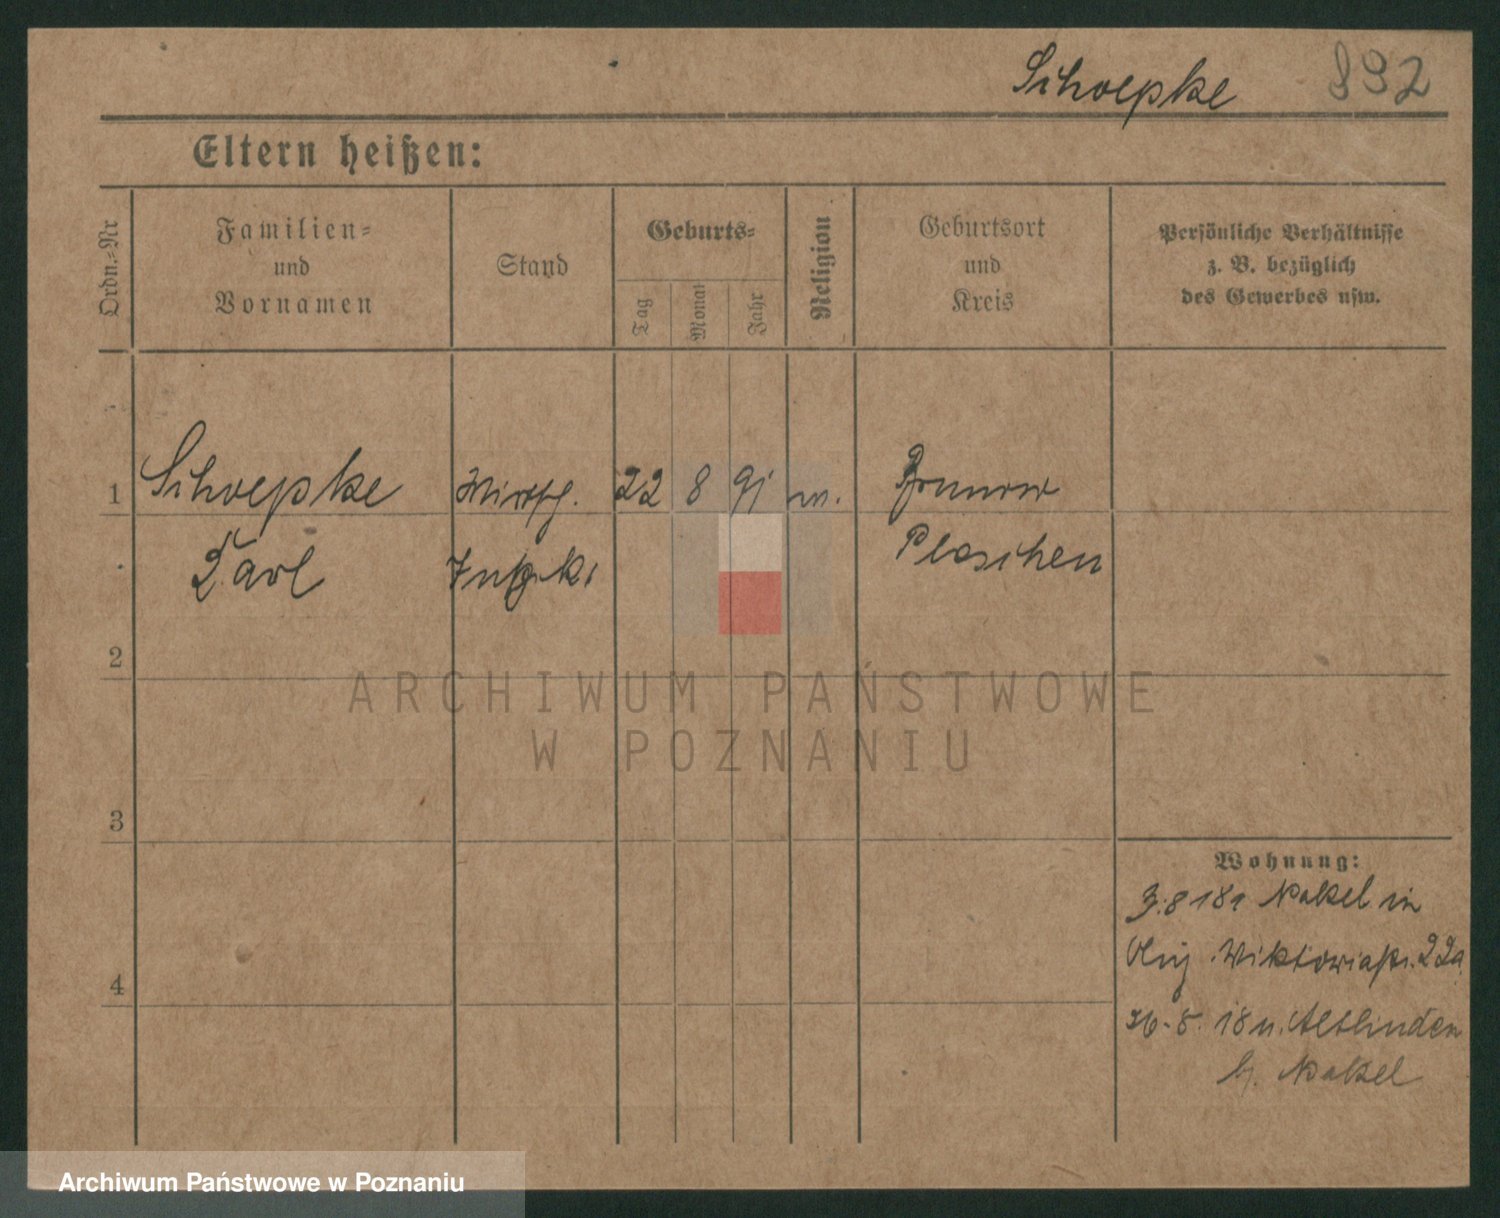 Schoepke 892
Eltern heißen:
Ordn.=Nr
Familien=
und
Vornamen
Stand
Geburts=
Tag
Monat
Jahr
Religion
Geburtsort
und
Kreis
Persönliche Verhältnisse
z. B. bezüglich
des Gewerbes usw.
1 Schoepke Wirtsch. 22 8 91
Karl Inspekt Pleschen
2
3
4
Wohnung:
3.8 181 Nakel in
Wiktoriastr. 22a
26.8. 18 n. Altlinden
b. Nakel
ARCHIWUM PAŃSTWOWE
W POZNANIU
Archiwum Państwowe w Poznaniu